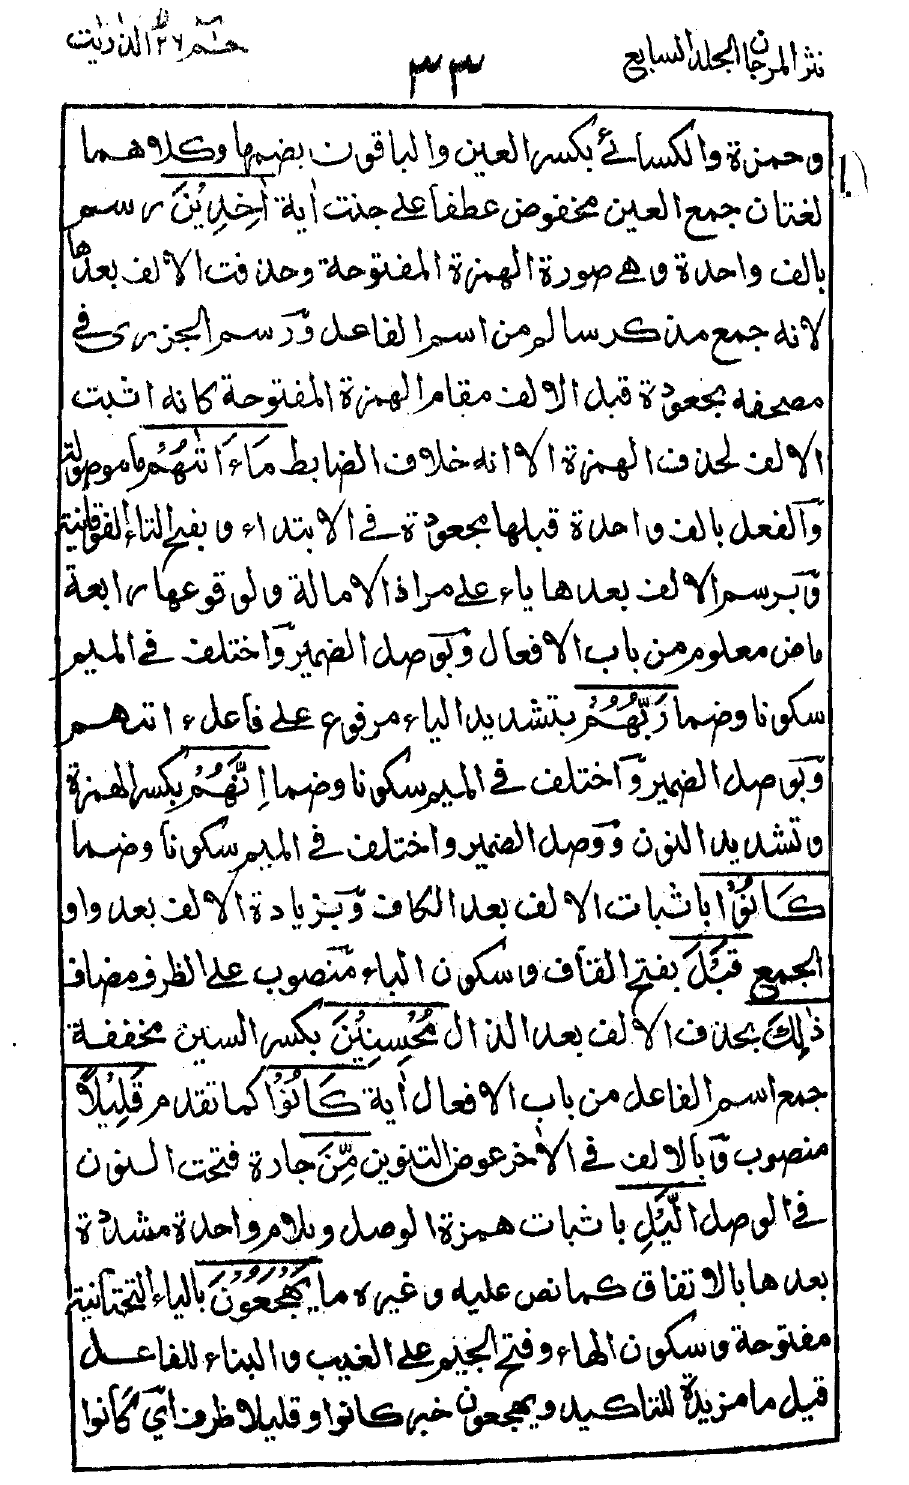 نثر المرجان المجلد السابع
٣٣
حٰم ٢٦ الذٰريٰت
وحمزة والكسائي بكسر العين والباقون بضمها وكلاهما
لغتان جمع العين مخفوض عطفا على جنت اٰية اٰخِذِيْنَ رسم
بالف واحدة وهي صورة الهمزة المفتوحة وحذفت الالف بعدها
لانه جمع مذكر سالم من اسم الفاعل وّرسم الجزري في
مصحفه بجعودة قبل الالف مقام الهمزة المفتوحة كانه اثبت
الالف لحذف الهمزة الا انه خلاف الضابط مَاءَاتٰهُمْ ما موصولة
وّالفعل بالف واحدة قبلها مجعودة في الابتداء وبفتح التاء الفوقانية
وّبرسم الالف بعدها ياء على مراد الامالة ولوقوعها رابعة
ماض معلوم من باب الافعال وّبوصل الضمير وّاختلف في الميم
سكونا وضما رَبُّهُمْ بتشديد الباء مرفوع على فاعل ءاتهم
وّبوصل الضمير وّاختلف في الميم سكونا وضما اِنَّهُمْ بكسر الهمزة
وتشديد النون وّوصل الضمير واختلف في الميم سكونا وضما
كَانُوْا باثبات الالف بعد الكاف وّبزيادة الالف بعد واو
الجمع قَبْلَ بفتح القاف وسكون الباء منصوب على الظرف مضاف
ذٰلِكَ بحذف الالف بعد الذال مُحْسِنِيْنَ بكسر السين مخففة
جمع اسم الفاعل من باب الافعال اٰية كَانُوْا كما تقدم قَلِيْلًا
منصوب وّبالالف في الاٰخر عوض التنوين مِّنَ جارة فتحت النون
في الوصل الَّيْلِ باثبات همزة الوصل وبلام واحدة مشددة
بعدها بالاتفاق كما نص عليه وغيره ما يَهْجَعُوْنَ بالياء التحتانية
مفتوحة وسكون الهاء وفتح الجيم على الغيب والبناء للفاعل
قيل ما مزيدة للتاكيد ويهجعون خبر كانوا وقليلا ظرف اي كانوا